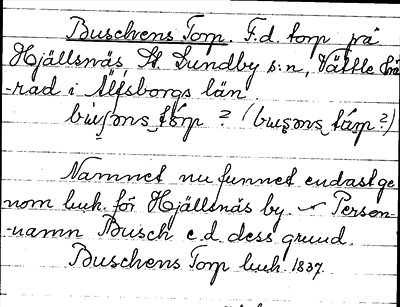 Buschens Torp. F.d. torp på
Hjällsnäs, St. Lundby s:n, Vättle hä
-rad i Älfsborgs län
Namnet nu funnet endast ge
nom luk. för Hjällsnäs by. – Person-
-namn Busch e.d. dess grund.
Buschens Torp luk. 1837.